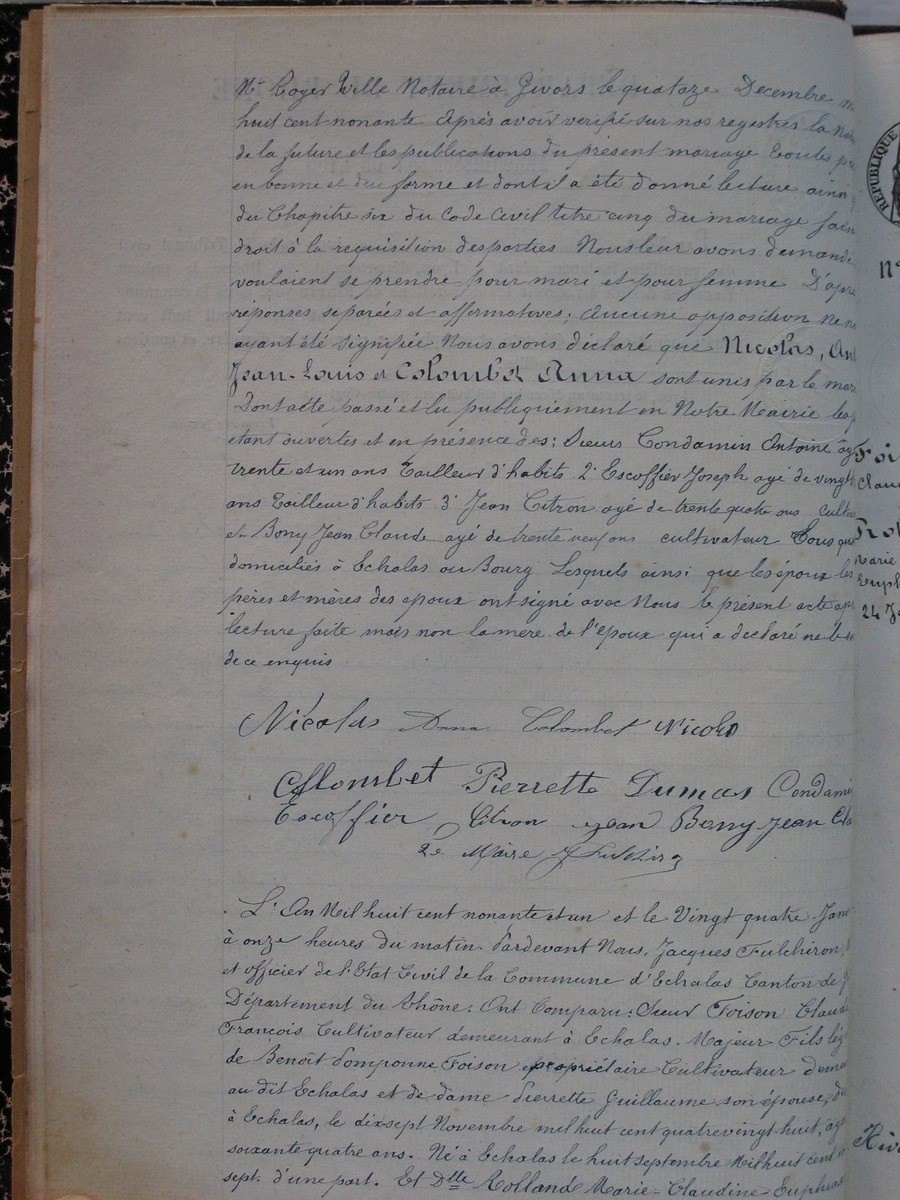 Me Royer Ville Notaire à Givors le quatorze Decembre
huit cent nonante Après avoir verifié sur nos registres la
de la future et les publications du présent mariage Toutes
en bonne et due forme et dont il a été donné lecture ainsi
du Chapitre six du Code Civil titre cinq du mariage
droit à la requisition des parties Nous leur avons demandé
voulaient se prendre pour mari et pour femme D'après
réponses separées et affirmatives; aucune opposition ne
ayant été signifiée Nous avons déclaré que Nicolas, Ant
Jean-Louis et Colombet Anna sont unis par le mar
Dont acte passé et lu publiquement en Notre Mairie les p
étant ouvertes et en présence des: Sieurs Condamin Antoine âgé
trente et un ans Tailleur d'habits 2° Escoffier Joseph agé de vingt
ans Tailleur d'habits 3° Jean Citron agé de trente quatre ans cultiv
et Bony Jean Claude agé de trente neuf ans cultivateur Tous qua
domiciliés à Echalas au Bourg Lesquels ainsi que les époux les
pères et mères des epoux ont signé avec Nous le présent acte apr
lecture faite mais non la mere de l'epoux qui a declaré ne le
de ce enquis
Nicolas Anna Colombet Nicolas
Collombet Pierrette Dumas Condamin
Escoffier Citron Jean Bony Jean Cla
Le Maire J Fulchiron
L'An Mil huit cent nonante et un et le Vingt quatre Janv
à onze heures du matin. Pardevant Nous, Jacques Fulchiron,
et officier de l'Etat Civil de la Commune d'Echalas Canton de G
Département du Rhône: Ont Comparu: Sieur Foison Claude
François Cultivateur demeurant à Echalas. Majeur Fils lég
de Benoît Pomponne Foison propriétaire Cultivateur deme
au dit Echalas et de dame Pierrette Guillaume son épouse, dé
à Echalas, le dix sept Novembre mil huit cent quatre vingt huit, agé
soixante quatre ans. Né à Echalas le huit septembre Mil huit cent
sept. d'une part. Et Dlle Rolland Marie-Claudine Euphras
RÉPUBLIQUE
N°
Foi
Clau
Rol
Marie
Euph
24 Ja
Rive